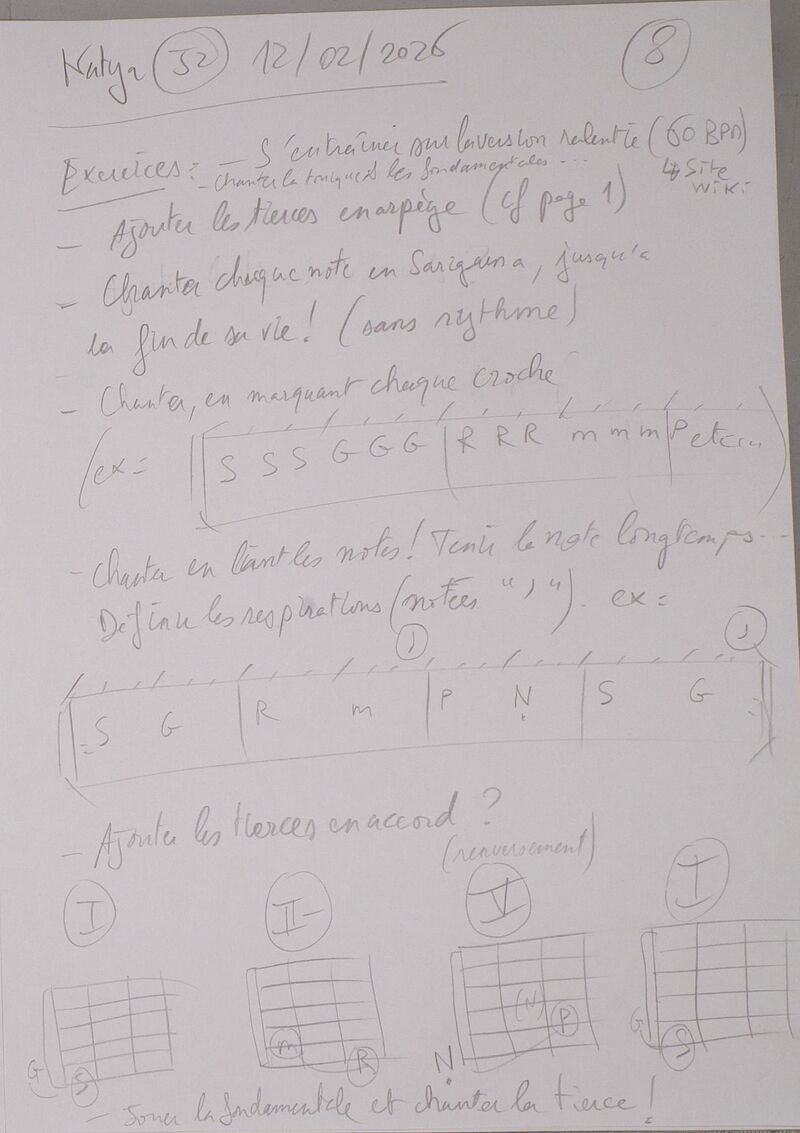 Natya J2 12/02/2026 8
Exercices : - S'entraîner sur la version ralentie (60 BPM)
↳ Site
Wiki
- Chanter la tonique les fondamentales ...
- Ajouter les tierces en arpège (cf page 1)
- Chanter chaque note en Sarigama, jusqu'à
la fin de sa vie ! (sans rythme)
- Chanter, en marquant chaque croche
(ex = S S S G G G R R R m m m P etc...)
- Chanter en liant les notes ! Tenir la note longtemps...
Définir les respirations (notées " , "). ex =
, ,
S G R m P Ṇ S G
- Ajouter les tierces en accord ?
(renversement)
I II- V I
G S m R Ṇ (N) P G S
- Jouer la fondamentale et chanter la tierce !